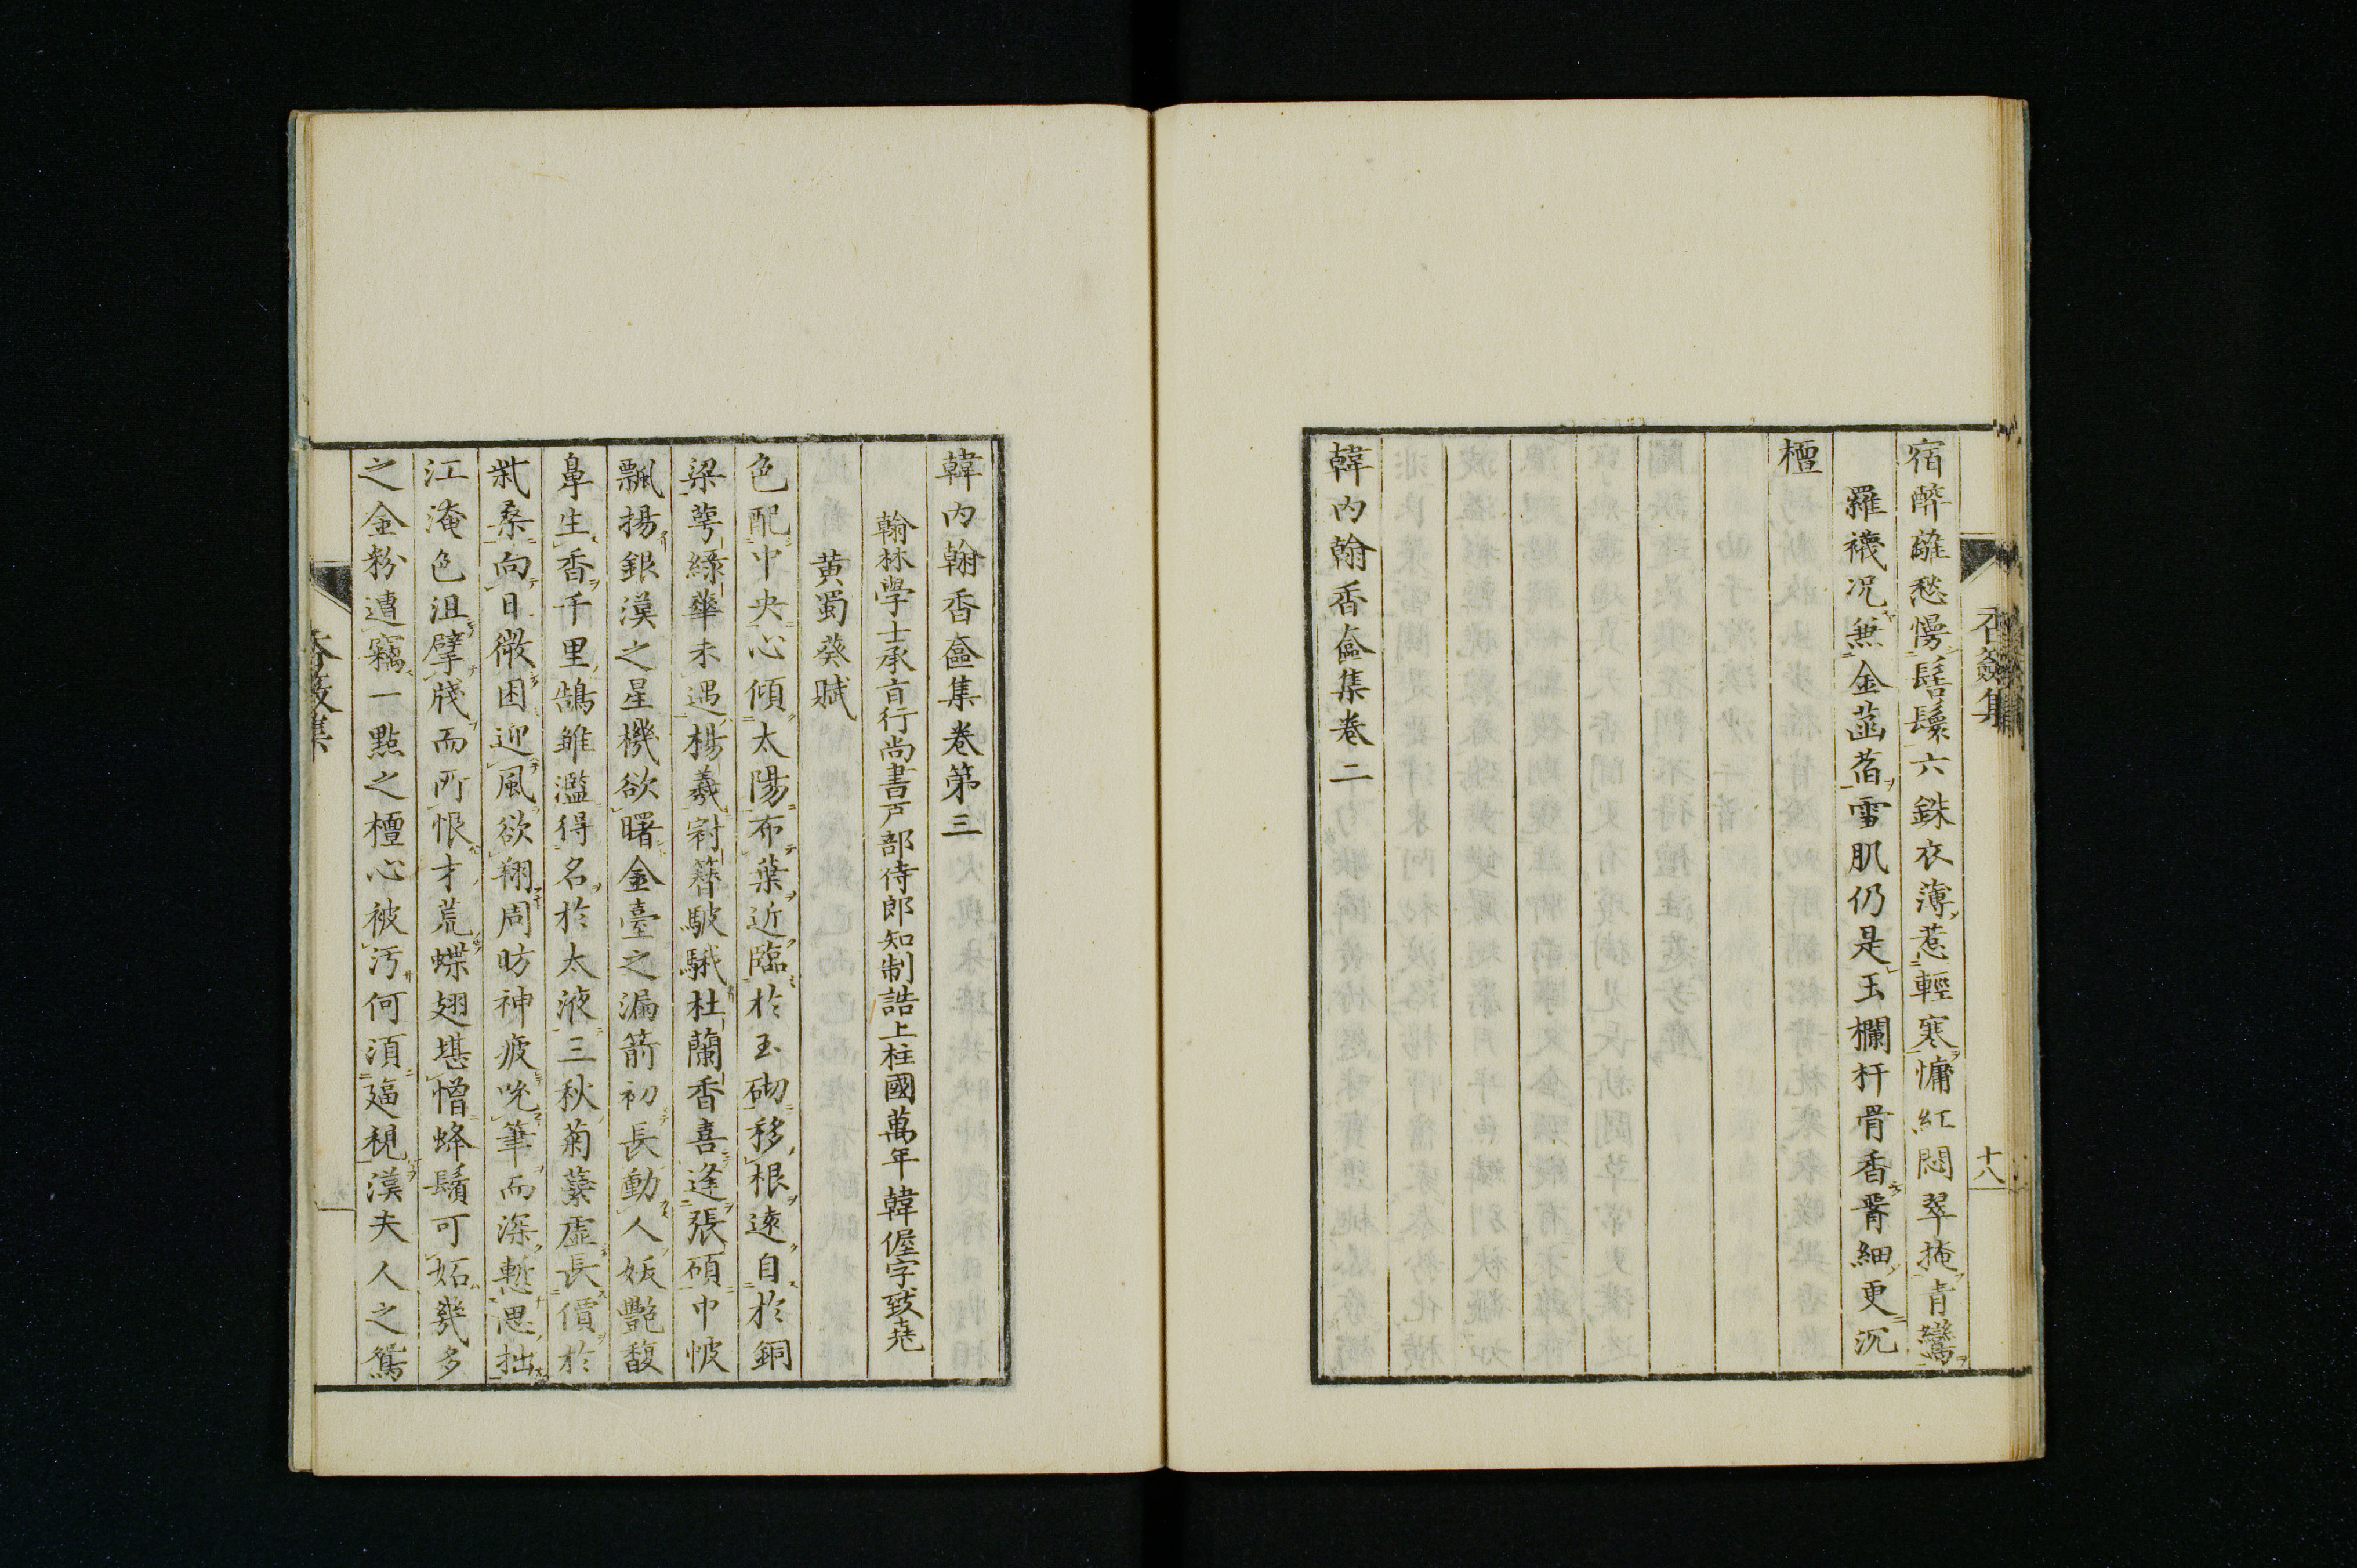 宿醉離愁慢髻鬟六銖衣薄惹輕寒慵紅悶翠掩青鸞
羅襪況兼金菡萏雪肌仍是玉欄杆骨香腰細更沉
檀
韓内翰香奩集卷二
香奩集
十八
韓内翰香奩集卷第三
翰林學士承旨行尚書戸部侍郎知制誥上柱國萬年韓偓字致堯
黄蜀葵賦
色配中央心傾太陽布葉近臨於玉砌移根遠自於銅
梁萼緑華未遇楊羲窃簪駊騀杜蘭香喜逢張碩巾帔
飄揚銀漢之星機欲曙金臺之漏箭初長動人妖艷馥
鼻生香千里鵠雖濫得名於太液三秋菊蘂虚長價於
柴桑向日微困迎風欲翔周昉神疲吮筆而深慙思拙
江淹色沮擘牋而所恨才荒蝶翅堪憎蜂鬚可妬幾多
之金粉遭竊一點之檀心被汚何須逼視漢夫人之鴛
香奩集